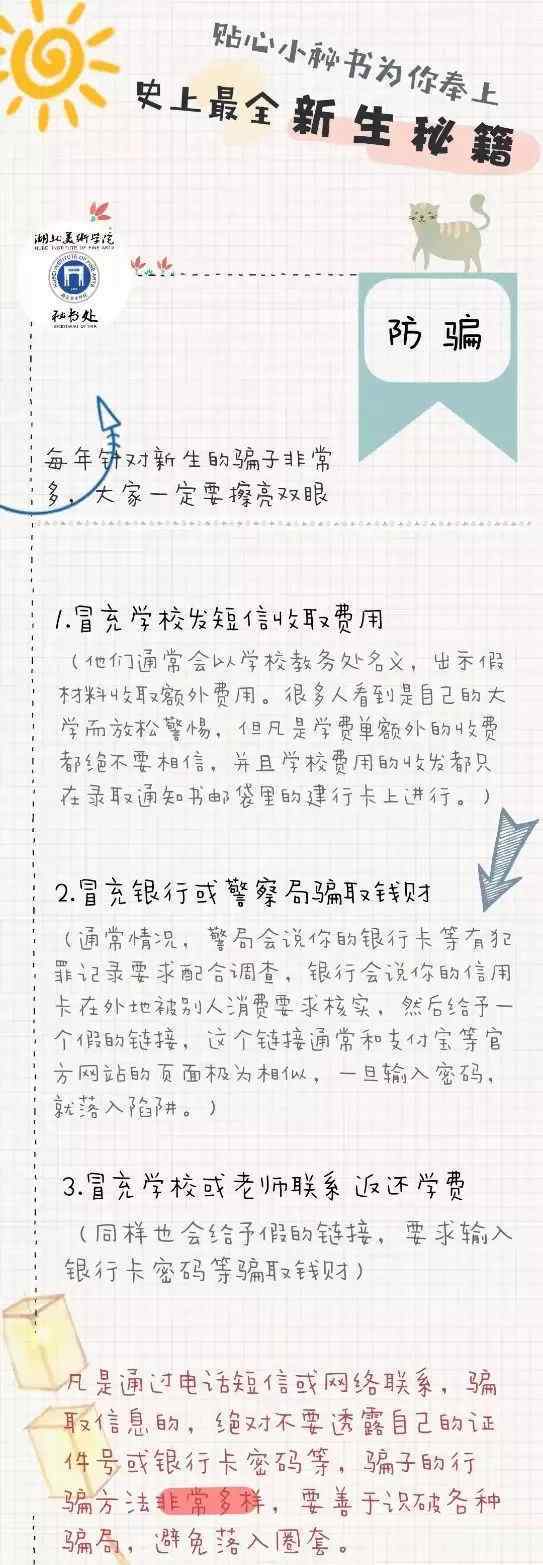 贴心小秘书为你奉上
史上最全新生秘籍
湖北美術学院
HUBEI INSTITUTE OF FINE ARTS
秘书处
防骗
每年针对新生的骗子非常
多，大家一定要擦亮双眼
1.冒充学校发短信收取费用
（他们通常会以学校教务处名义，出示假
材料收取额外费用。很多人看到是自己的大
学而放松警惕，但凡是学费单额外的收费
都绝不要相信，并且学校费用的收发都只
在录取通知书邮袋里的建行卡上进行。）
2.冒充银行或警察局骗取钱财
（通常情况，警局会说你的银行卡等有犯
罪记录要求配合调查，银行会说你的信用
卡在外地被别人消费要求核实，然后给予一
个假的链接，这个链接通常和支付宝等官
方网站的页面极为相似，一旦输入密码，
就落入陷阱。）
3.冒充学校或老师联系 返还学费
（同样也会给予假的链接，要求输入
银行卡密码等骗取钱财）
凡是通过电话短信或网络联系，骗
取信息的，绝对不要透露自己的证
件号或银行卡密码等，骗子的行
骗方法非常多样，要善于识破各种
骗局，避免落入圈套。